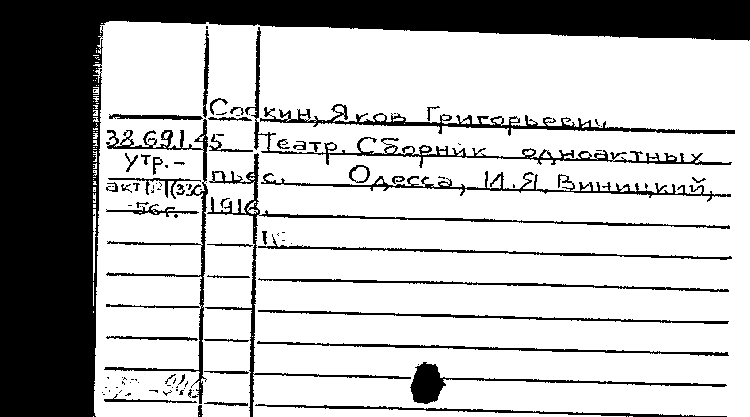 Соскин, Яков Григорьевич
38.691.45 Театр. Сборник одноактных
утр.-
пьес. Одесса, И.Я. Виницкий,
акт (336)
56 г. 1916.